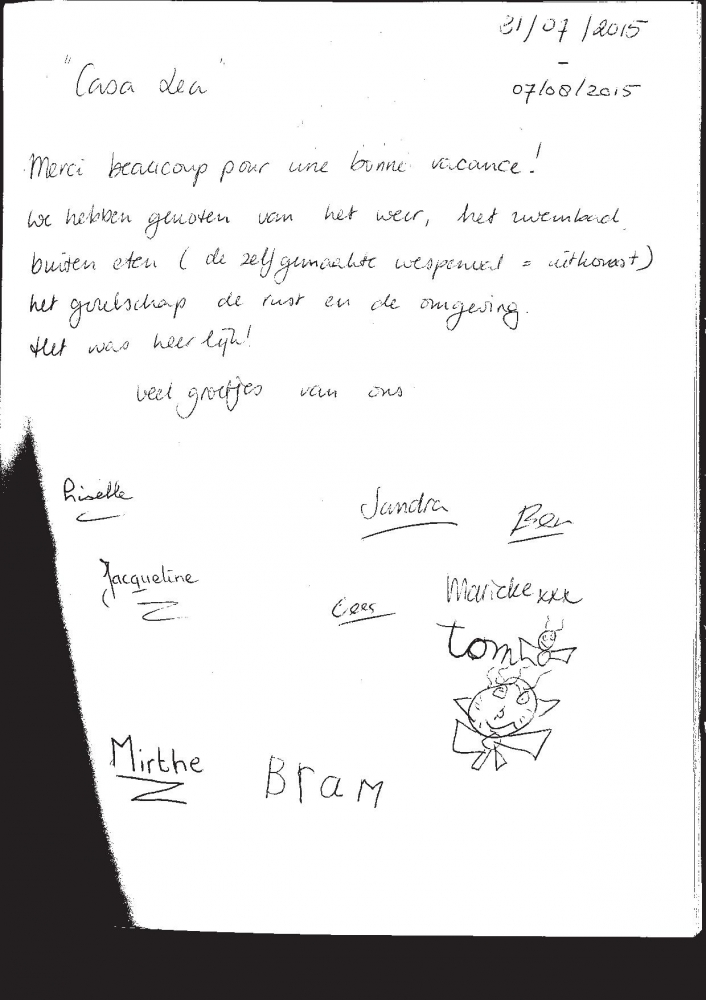 31/07/2015
-
07/08/2015
"Casa Lea"
Merci beaucoup pour une bonne vacance!
We hebben genoten van het weer, het zwembad,
buiten eten (de zelfgemaakte wespenval = uitkomst)
het gezelschap de rust en de omgeving.
Het was heerlijk!
Veel groetjes van ons
Liselle
Sandra
Ben
Jacqueline
Cees
Marieke xxx
Tom
Mirthe
Bram